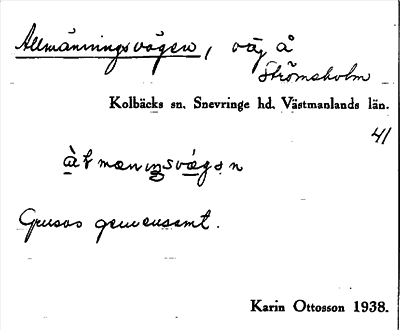 Allmänningsvägen, väg å
Strömsholm
Kolbäcks sn. Snevringe hd. Västmanlands län.
41
Grusas gemensamt.
Karin Ottosson 1938.